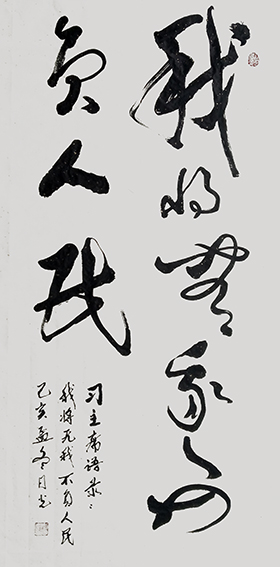 我将無我不
负人民
习主席语录
我将无我不负人民
己亥孟冬月